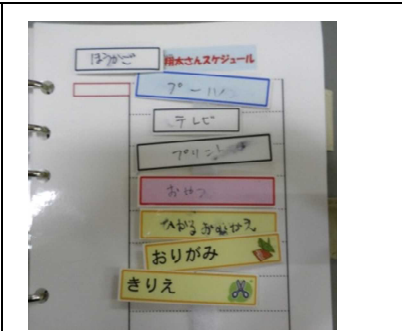 ほうかご
翔太さんスケジュール
プール
テレビ
プリント
おやつ
おむかえ
おりがみ
きりえ